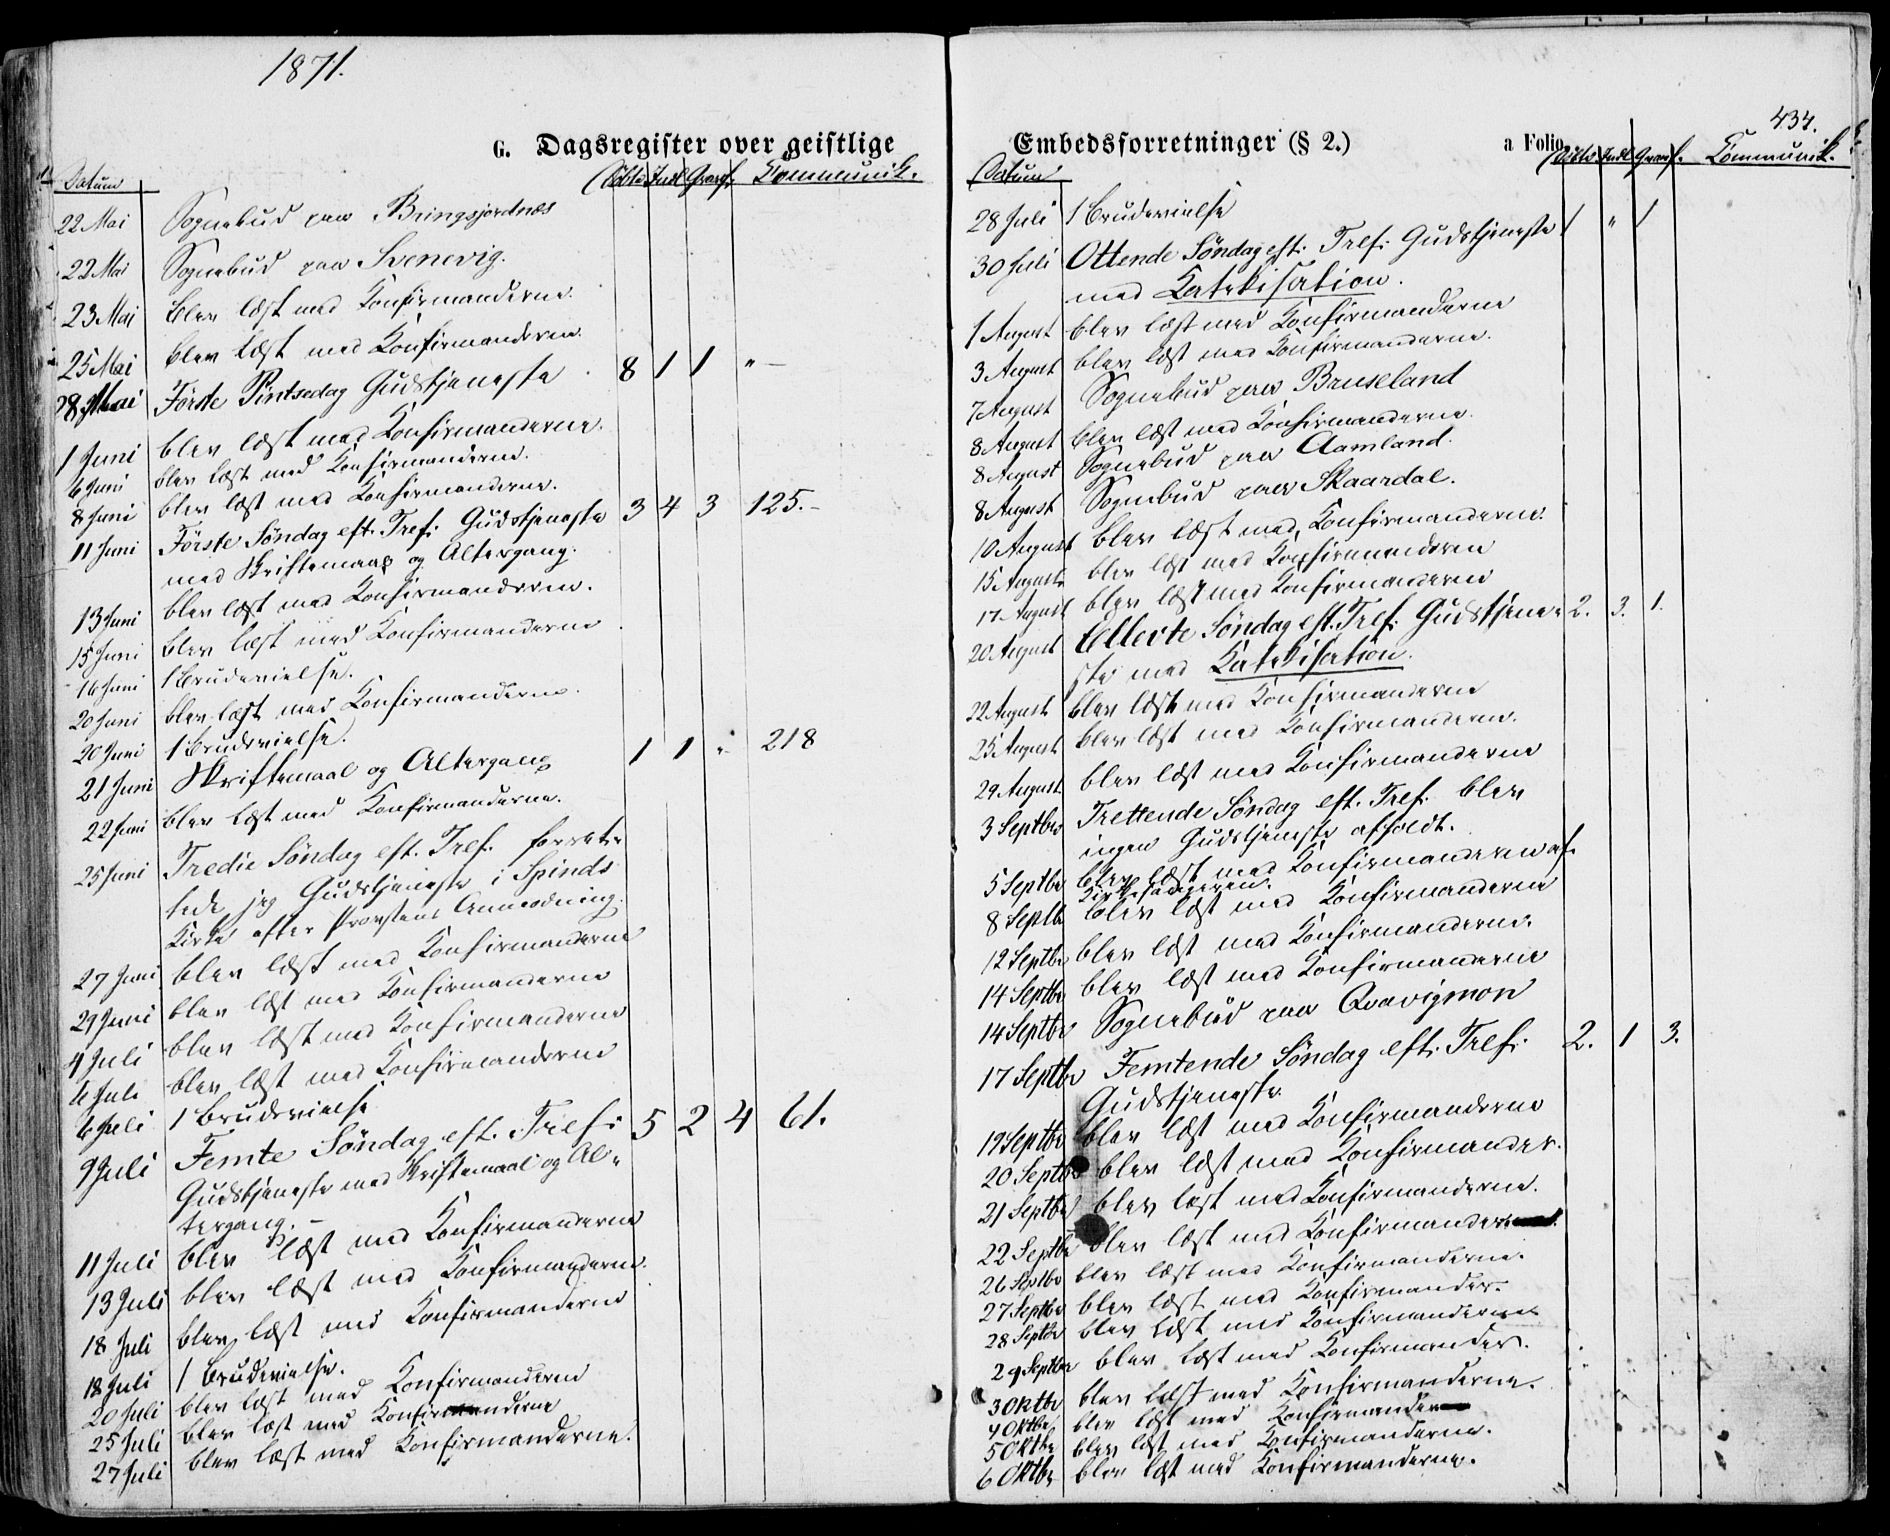 1871.
G. Dagsregister over geistlige
Datum Døbte Indl Gravf. Communik.
22 Mai Sognebud paa Bringsjordnes
22 Mai Sognebud paa Svenevig.
23 Mai blev læst med Konfirmanderne.
25 Mai blev læst med Konfirmanderne.
28 Mai Første Pintsedag Gudstjeneste 8 1 1 " —
1 Juni blev læst med Konfirmanderne.
6 Juni blev læst med Konfirmanderne.
8 Juni blev læst med Konfirmanderne.
11 Juni Første Søndag eft. Tref: Gudstjeneste 3 4 3 125.-
med Skriftemaal og Altergang.
13 Juni blev læst med Konfirmanderne.
15 Juni blev læst med Konfirmanderne
16 Juni 1 Brudevielse.
20 Juni blev læst med Konfirmanderne.
20 Juni 1 Brudevielse.
21 Juni Skriftemaal og Altergang 1 1 " 218
22 Juni blev læst med Konfirmanderne.
25 Juni Tredie Søndag eft. Tref. forret-
tede jeg Gudstjeneste i Spinds
Kirke efter Provstens Anmodning.
27 Juni blev læst med Konfirmanderne
29 Juni blev læst med Konfirmanderne
4 Juli blev læst med Konfirmanderne
6 Juli blev læst med Konfirmanderne
6 Juli 1 Brudevielse
9 Juli Femte Søndag eft. Tref: 5 2 4 61.
Gudstjeneste med Skriftemaal og Al-
tergang. —
11 Juli blev læst med Konfirmanderne
13 Juli blev læst med Konfirmanderne.
18 Juli blev læst med Konfirmanderne
18 Juli 1 Brudevielse.
20 Juli blev læst med Konfirmanderne
25 Juli blev læst med Konfirmanderne
27 Juli blev læst med Konfirmanderne.
434.
Embedsforretninger (§ 2.) a Folio
Datum Døbte Indl Gravf. Communik.
28 Juli 1 Brudevielse
30 Juli Ottende Søndag eft. Tref: Gudstjeneste 1 " 1
med Katekisation.
1 August blev læst med Konfirmanderne
3 August blev læst med Konfirmanderne.
7 August Sognebud paa Bruseland
8 August blev læst med Konfirmanderne.
8 August Sognebud paa Aamland.
8 August Sognebud paa Skaardal.
10 August blev læst med Konfirmanderne.
15 August blev læst med Konfirmanderne
17 August blev læst med Konfirmanderne
20 August Ellevte Søndag eft. Tref: Gudstjene- 2. 3. 1.
ste med Katekisation.
22 August blev læst med Konfirmanderne
25 August blev læst med Konfirmanderne.
29 August blev læst med Konfirmanderne
3 Septbr Trettende Søndag eft. Tref. blev
ingen Gudstjeneste afholdt.
5 Septbr blev læst med Konfirmanderne af
Kirkesangeren.
8 Septbr blev læst med Konfirmanderne
12 Septbr blev læst med Konfirmanderne.
14 Septbr blev læst med Konfirmanderne
14 Septbr Sognebud paa Qvavigmon
17 Septbr Femtende Søndag eft. Tref: 2. 1 3.
Gudstjeneste
19 Septbr blev læst med Konfirmanderne
20 Septbr blev læst med Konfirmander.
21 Septbr blev læst med Konfirmanderne.
22 Septbr blev læst med Konfirmander
26 Septbr blev læst med Konfirmanderne.
27 Septbr blev læst med Konfirmander.
28 Septbr blev læst med Konfirmanderne
29 Septbr blev læst med Konfirmander.
3 Oktbr blev læst med Konfirmanderne.
4 Oktbr blev læst med Konfirmander
5 Oktbr blev læst med Konfirmanderne.
6 Oktbr blev læst med Konfirmanderne.